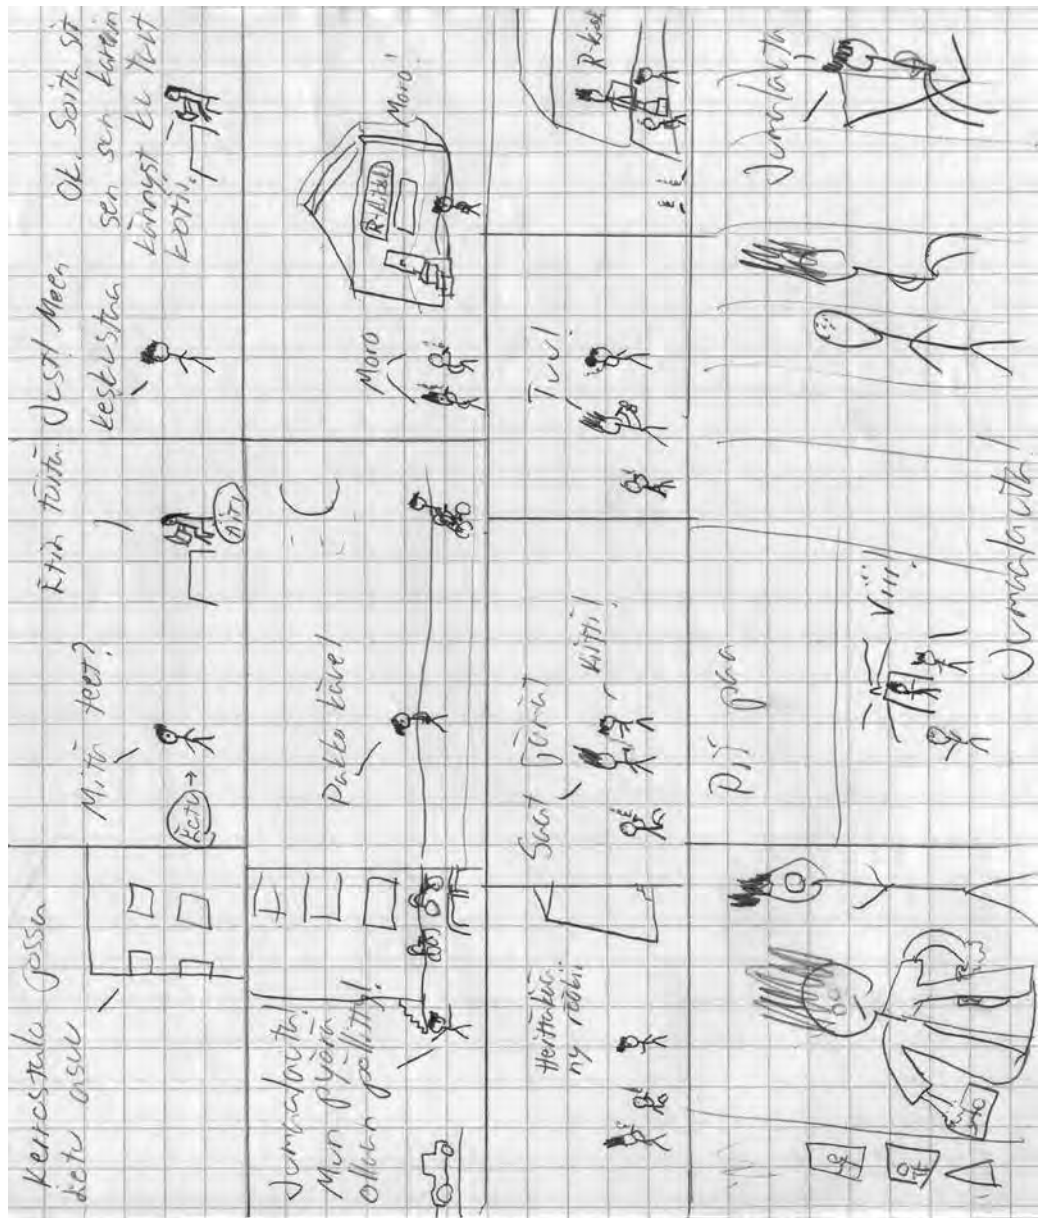 Kerrostalo jossa
Eetu asuu
Mitä teet?
Eetu →
Etin töitä.
ÄITI
Just! Meen
keskustaan
Ok. Soita sit
sen sen kaverin
kännyst ku tuut
kotii.
Jumalauta!
Mun pyörä
ollaan pöllitty!
Pakko kävel
:(
Moro
R-kioski
Moro!
ny röökii
Saat jämät
Kiitti!
Tuu!
R-kiosk
Pii paa
Viii!
Jumalauta!
Jumalauta